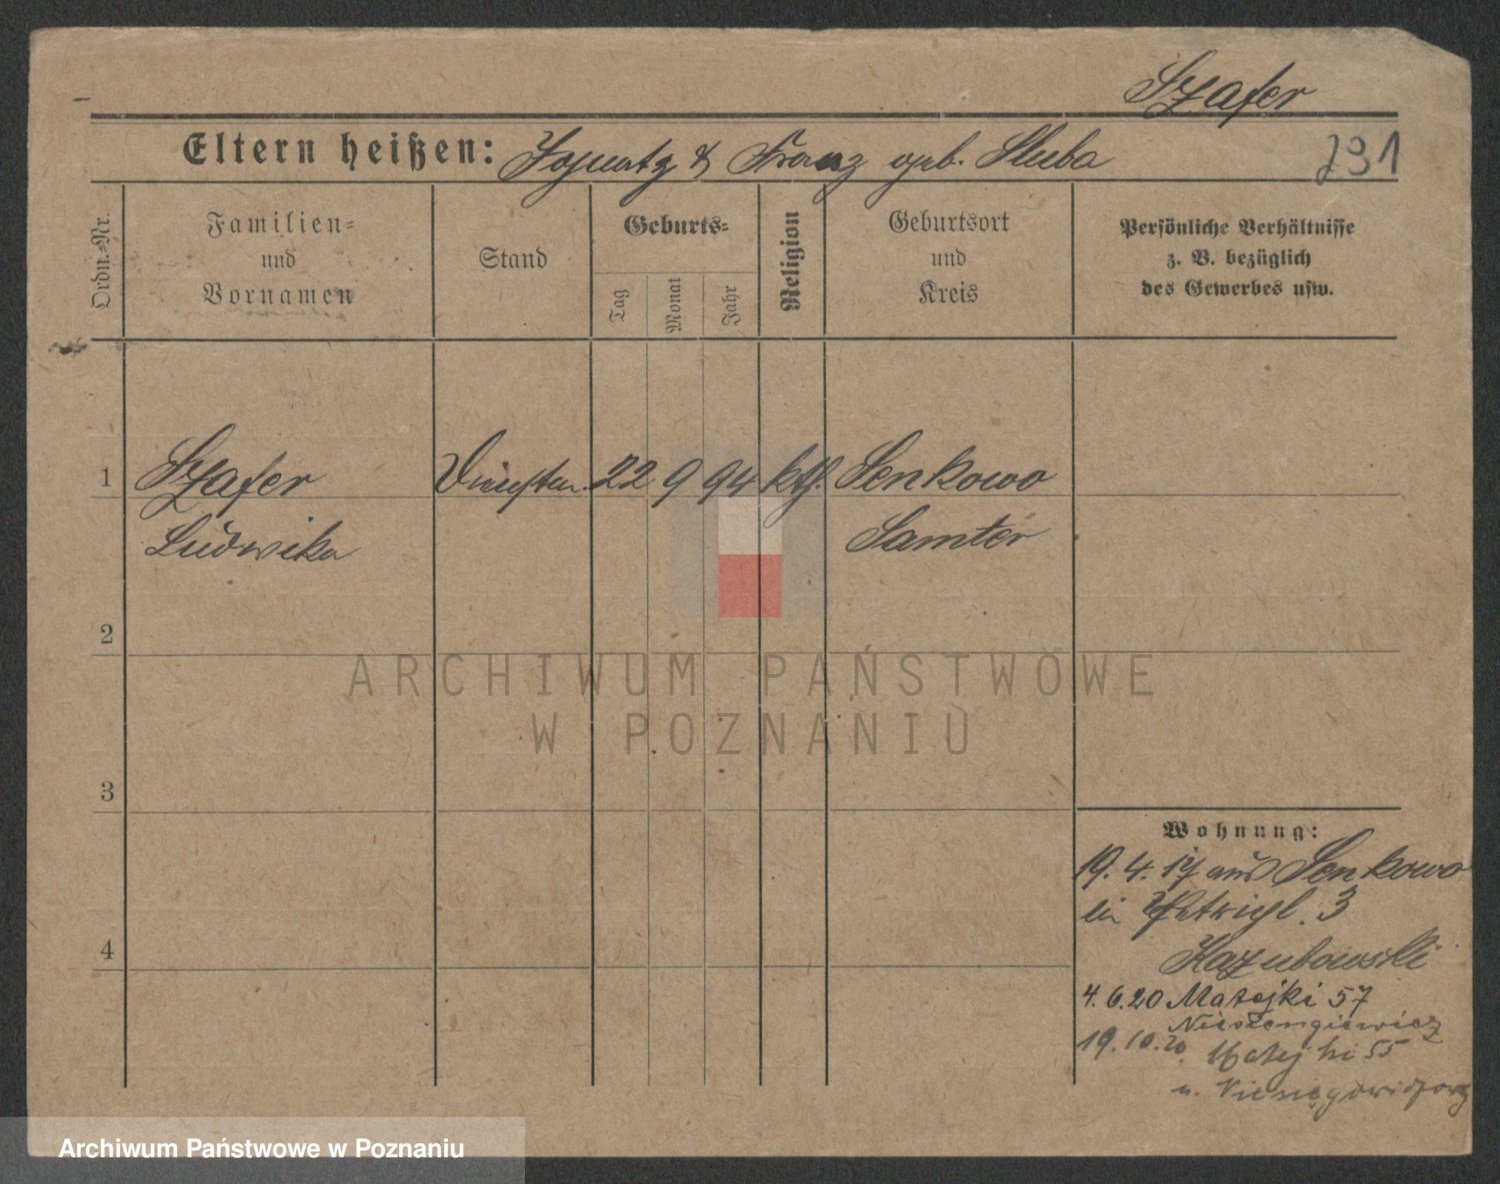 Szafer
Eltern heißen: Ignatz & Franz geb. Sluba
791
Ordn.-Nr.
Familien-
und
Vornamen
Stand
Geburts-
Tag
Monat
Jahr
Religion
Geburtsort
und
Kreis
Persönliche Verhältnisse
z. B. bezüglich
des Gewerbes usw.
1 Szafer 22 9 94 kth. Senkowo
Ludwika Samter
2
3
4
Wohnung:
19.4.17 aus Senkowo
in 3
Kazubowski
4.6.20 Matejki 57
19.10.20 Matejki 55
ARCHIWUM PAŃSTWOWE
W POZNANIU
Archiwum Państwowe w Poznaniu